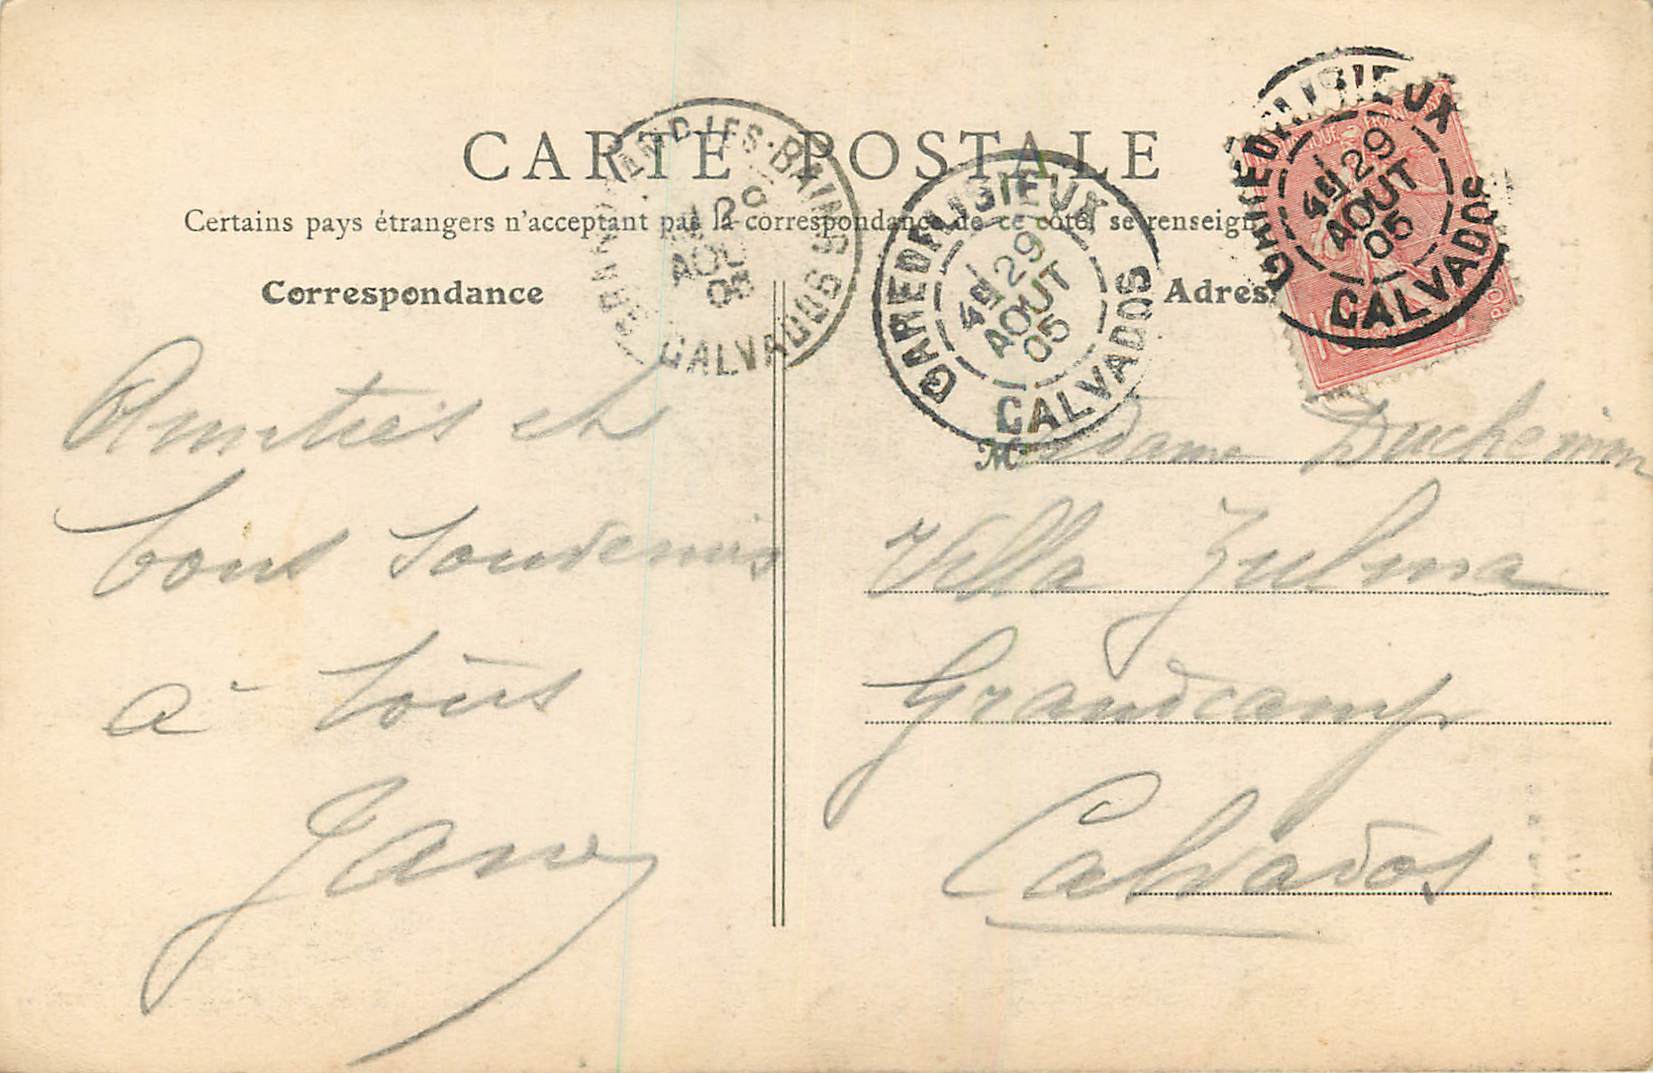 CARTE POSTALE
Certains pays étrangers n'acceptent pas la correspondance de ce côté, se renseign
Correspondance
Adres
GARE DE LISIEUX
4E 29
AOUT
05
CALVADOS
GARE DE LISIEUX
4E 29
AOUT
05
CALVADOS
BAINS
29
AOUT
05
CALVADOS
10
Amitiés et
bons souvenirs
à tous
Jane
Madame Duchemin
Villa Zulma
Grandcamp
Calvados